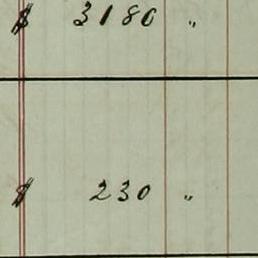 $ 3180 "
$ 230 "